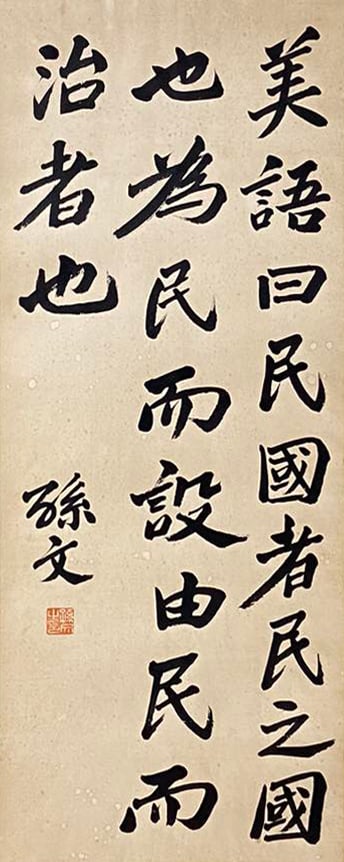 美語曰民國者民之國
也為民而設由民而
治者也
孫文